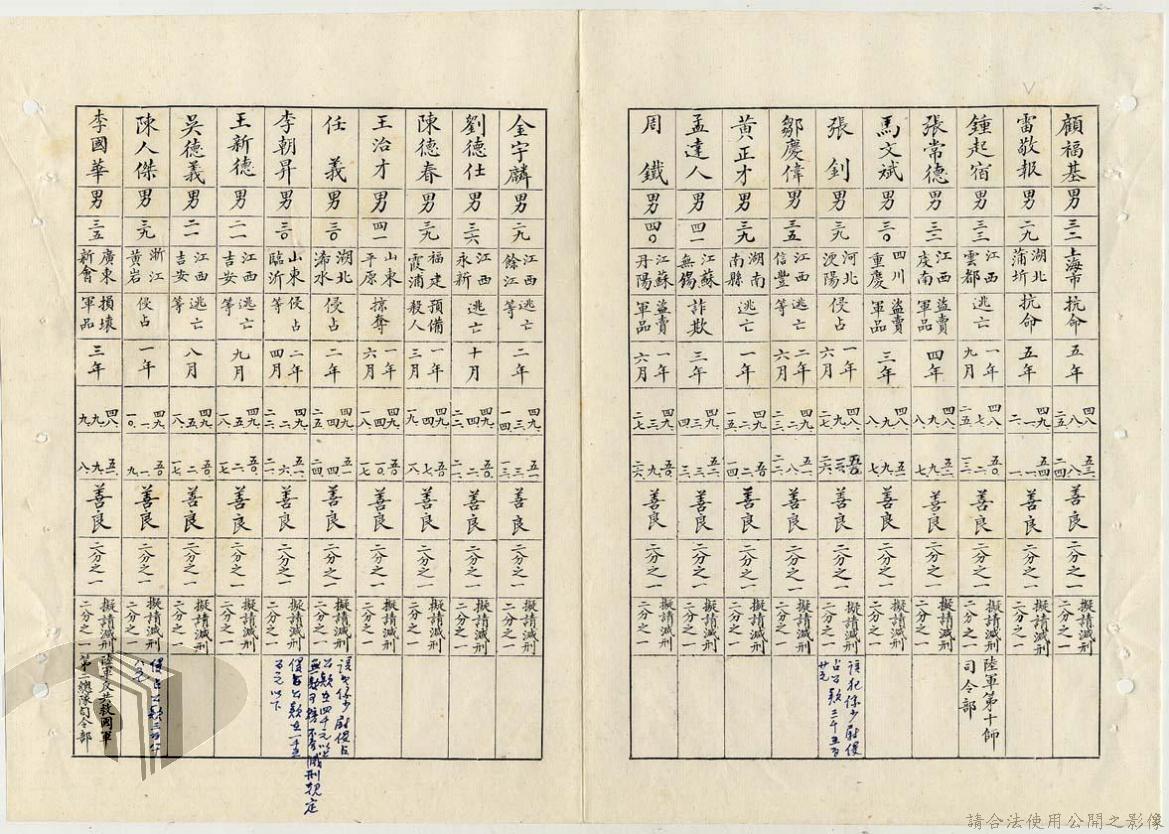 顧福基 男 三二 上海市 抗命 五年 四八、八、二五、 五三、八、二四 善良 二分之一 擬請減刑二分之一
雷敬報 男 二九 湖北蒲圻 抗命 五年 四九、一、二、 五四、一、一、 善良 二分之一 擬請減刑二分之一
鍾起宿 男 三三 江西雲都 逃亡 一年九月 四八、七、二五、 五〇、二、一三、 善良 二分之一 擬請減刑二分之一 陸軍第十師司令部
張常德 男 三二 江西虔南 盜賣軍品 四年 四八、九、八、 五二、九、七、 善良 二分之一 擬請減刑二分之一
馬文斌 男 三〇 四川重慶 盜賣軍品 三年 四八、九、八、 五一、九、七、 善良 二分之一 擬請減刑二分之一
張釗 男 三九 河北 侵占 一年六月 四八、九、二七、 善良 二分之一 擬請減刑二分之一 該犯係少尉侵占公款二千五百廿元
鄒慶偉 男 三五 江西信豐 逃亡等 二年六月 四九、二、二三、 五一、八、二二、 善良 二分之一 擬請減刑二分之一
黃正才 男 三九 湖南南縣 逃亡 一年 四九、二、一五、 五〇、二、一四、 善良 二分之一 擬請減刑二分之一
孟達人 男 四一 江蘇無錫 詐欺 三年 四九、三、四、 五二、三、三、 善良 二分之一 擬請減刑二分之一
周鐵 男 四〇 江蘇丹陽 盜賣軍品 一年六月 四九、三、二七、 五〇、九、二六、 善良 二分之一 擬請減刑二分之一
金宇麟 男 二九 江西餘江 逃亡等 二年 四九、一、一四、 五一、一、一三、 善良 二分之一 擬請減刑二分之一
劉德仕 男 三六 江西永新 逃亡 十月 四九、四、二二、 五〇、二、二一、 善良 二分之一 擬請減刑二分之一
陳德春 男 三九 福建霞浦 預備殺人 一年三月 四九、四、一九、 五〇、七、一八、 善良 二分之一 擬請減刑二分之一
王治才 男 四一 山東平原 掠奪 一年六月 四九、四、一八、 五〇、一〇、一七、 善良 二分之一 擬請減刑二分之一
任義 男 三〇 湖北浠水 侵占 二年 四九、四、二五、 五一、四、二四、 善良 二分之一 擬請減刑二分之一 該犯係少尉侵占公款在四千元以上並無不得予減刑規定
李朝昇 男 三〇 山東臨沂 侵占等 二年四月 四九、二、二二、 五一、六、二一、 善良 二分之一 擬請減刑二分之一 侵占公款在一千五百元以下
王新德 男 二二 江西吉安 逃亡等 九月 四九、五、一八、 五〇、二、一七、 善良 二分之一 擬請減刑二分之一
吳德義 男 二一 江西吉安 逃亡等 八月 四九、五、一八、 五〇、一、一七、 善良 二分之一 擬請減刑二分之一
陳人傑 男 三九 浙江黃岩 侵占 一年 四九、一、一〇、 五〇、一、九、 善良 二分之一 擬請減刑二分之一 侵占公款三百
李國華 男 三五 廣東新會 損壞軍品 三年 四八、九、九、 五一、九、八、 善良 二分之一 擬請減刑二分之一 陸軍反共救國軍第二總隊司令部
請合法使用公開之影像